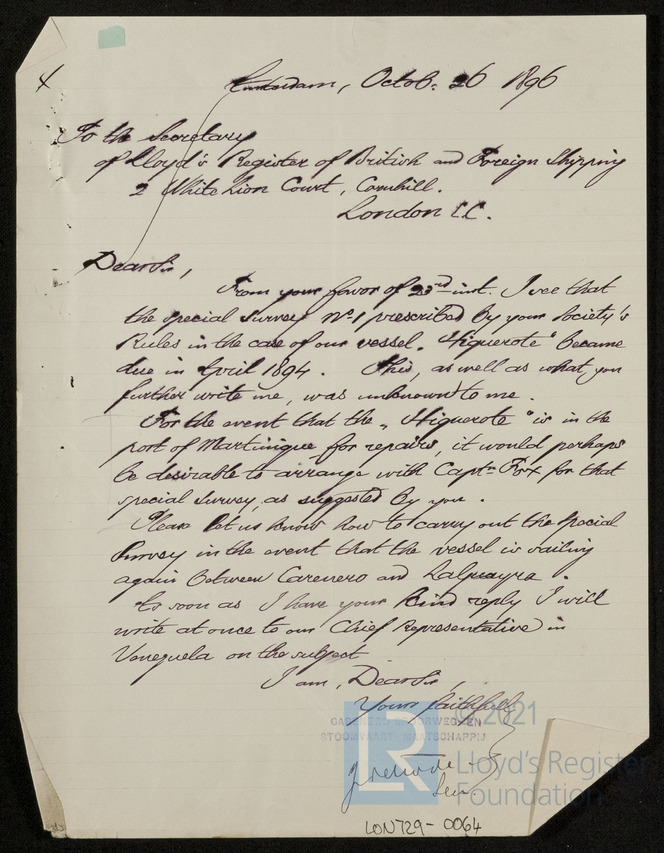 4
Amsterdam, Octob. 26 1896
To the Secretary
of Lloyd's Register of British and Foreign Shipping
2 White Lion Court, Cornhill.
London E.C.
Dear Sir,
From your favor of 23rd inst. I see that
the special survey No. 1 prescribed by your Society's
Rules in the case of our vessel „Higuerote" became
due in April 1894. This, as well as what you
further write me, was unknown to me.
For the event that the „Higuerote" is in the
port of Martinique for repairs, it would perhaps
be desirable to arrange with Captn Fox for that
special survey, as suggested by you.
Please let us know how to carry out the Special
Survey in the event that the vessel is sailing
again between Carenero and Laguayra.
As soon as I have your kind reply I will
write at once to our Chief Representative in
Venezuela on the subject
I am, Dear Sir,
Yours faithfully
STOOMVAART-MAATSCHAPPIJ
Sec.
LR
© 2021
Lloyd's Register
Foundation
LON729-0064